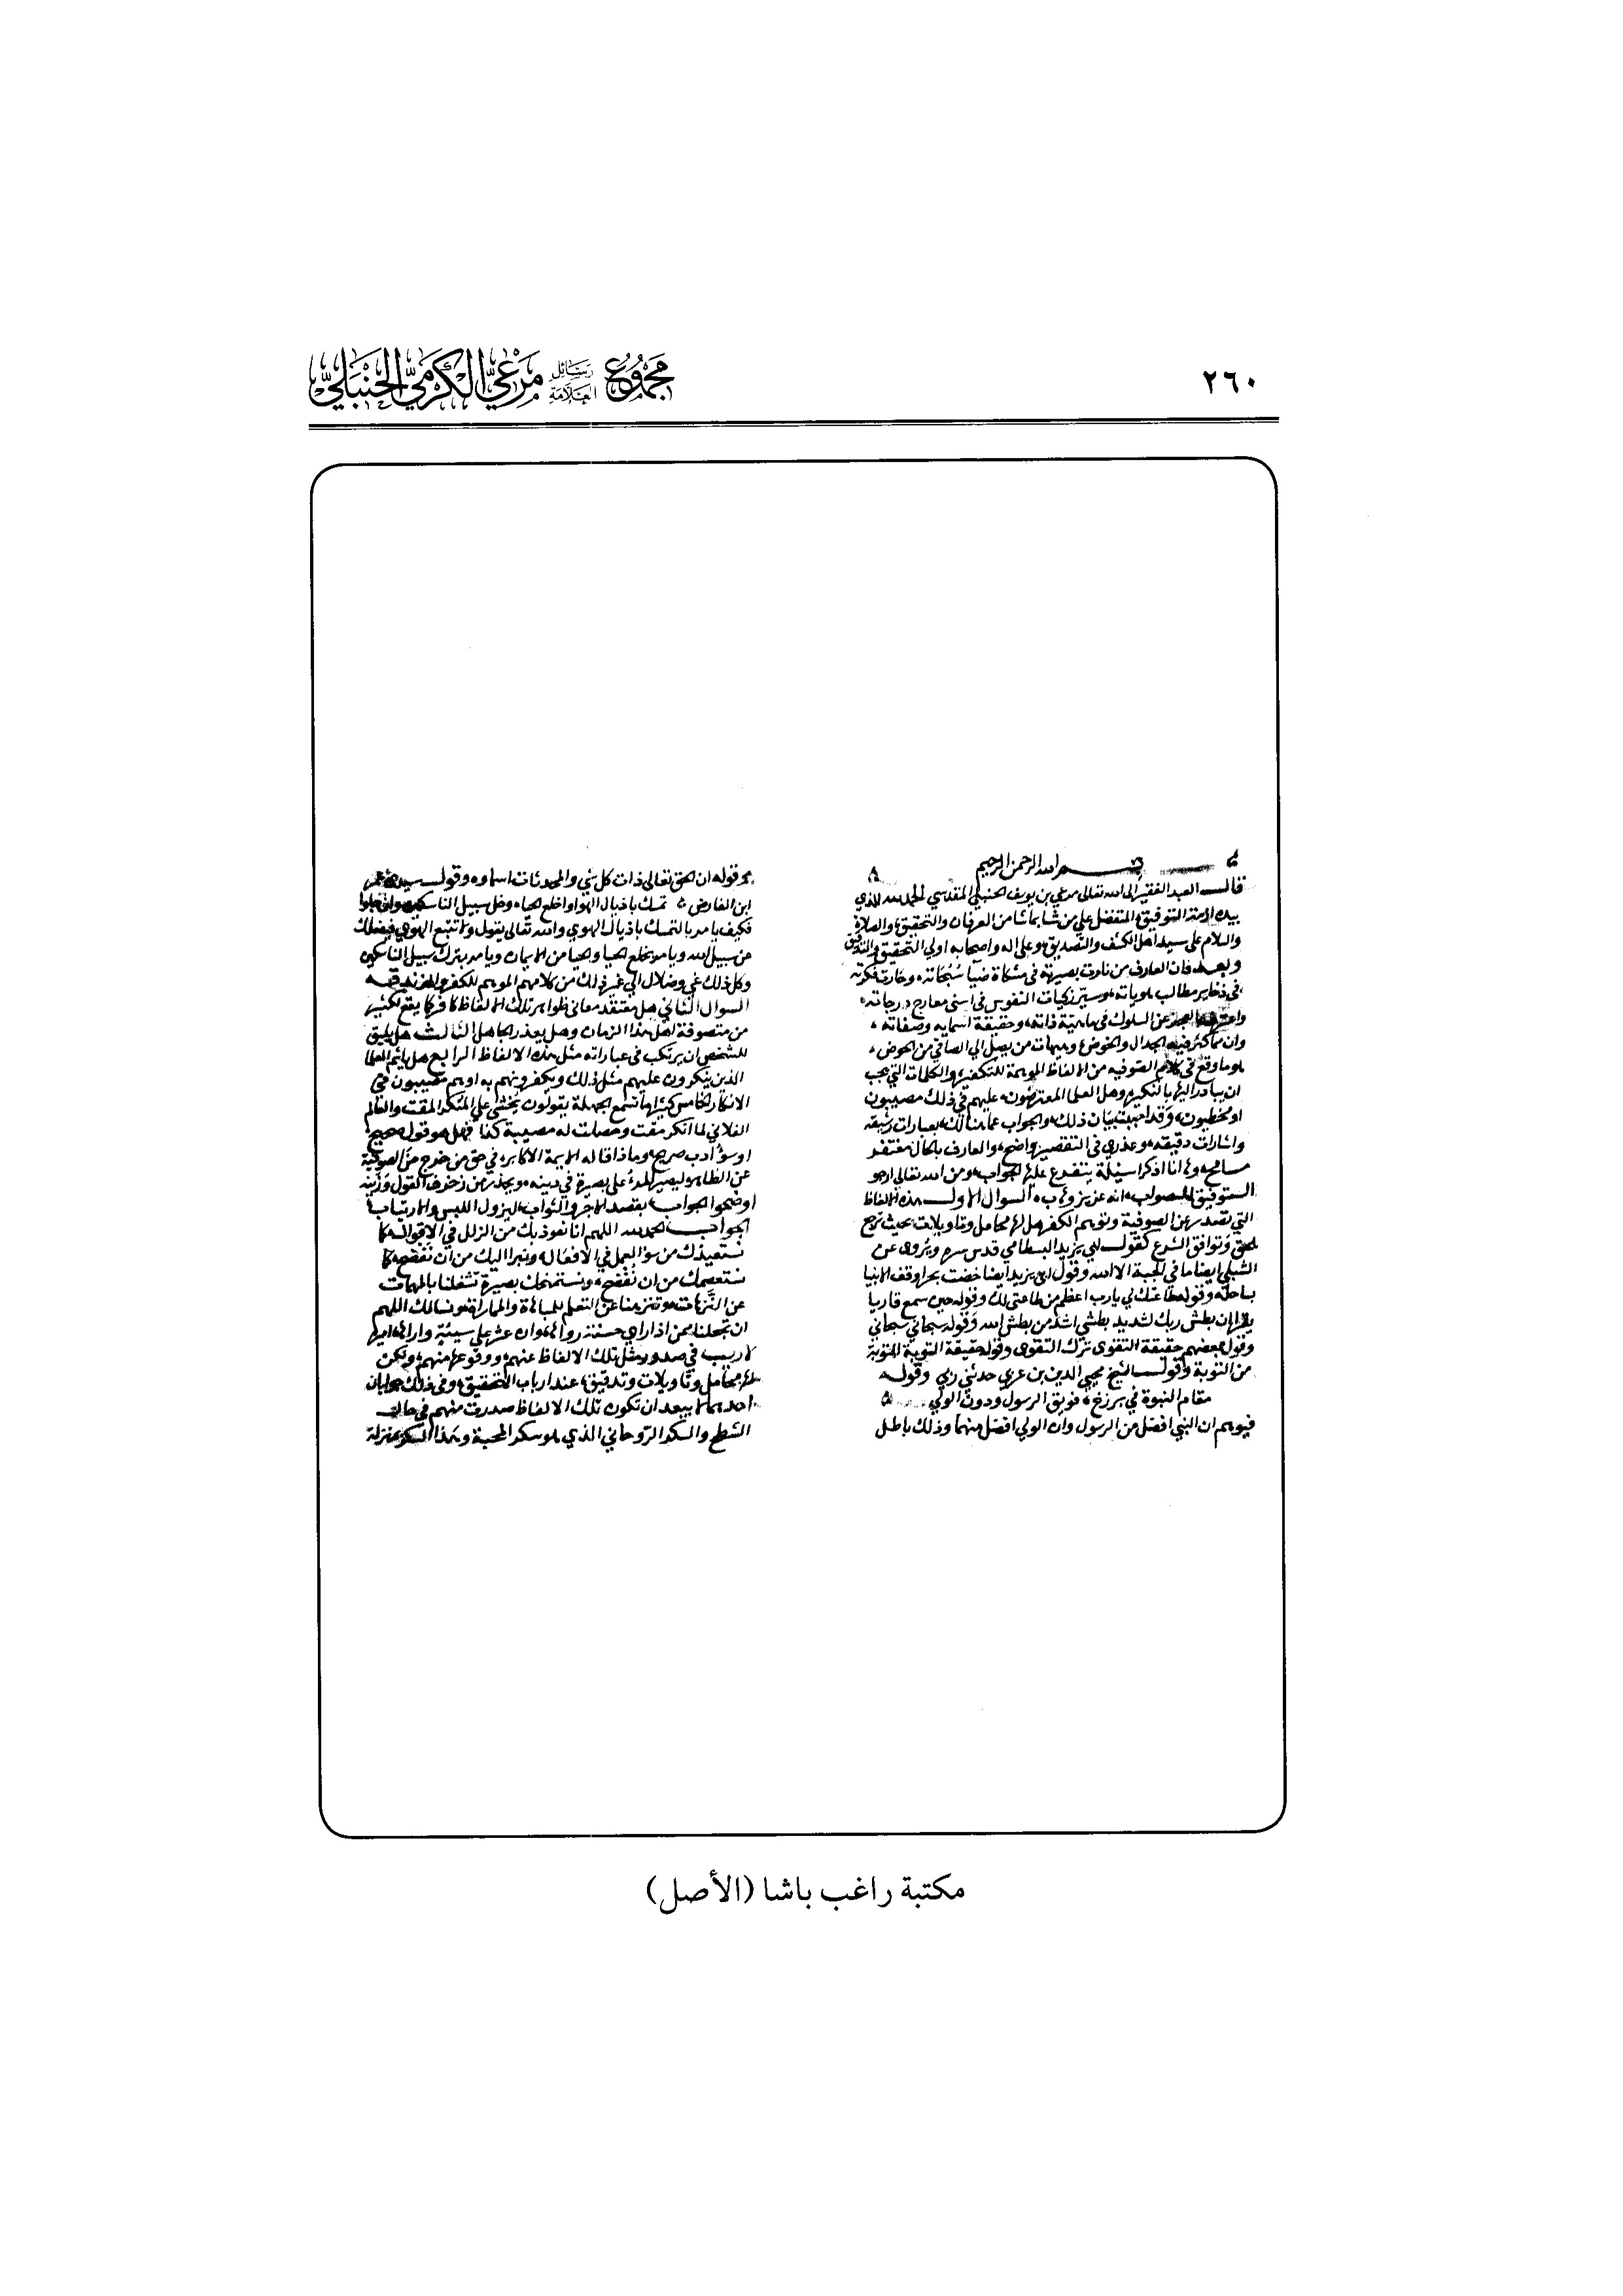 ٢٦٠
مجموع رسائل العلامة مرعي الكرمي الحنبلي
بسم الله الرحمن الرحيم
٨
قال العبد الفقير الى الله تعالى مرعي بن يوسف الحنبلي المقدسي الحمد لله الذي
بيده ازمة التوفيق المتفضل على من شا بما شا من العرفان والتحقيق والصلاة
والسلام على سيد اهل الكشف والتصديق وعلى اله واصحابه اولي التحقيق والتدقيق
وبعد فان العارف من نارت بصيرته في مشكاة ضيا سبحاته وحارت فكرته
في ذخاير مطالب هوياته وسير زكيات النفوس في اسنى معارج درجاته
العجز عن السلوك في ماهية ذاته وحقيقة اسمايه وصفاته
وان مما كثر فيه الجدال والخوض وهيهات من يصل الي الصافي من الحوض
هو ما وقع في كلام الصوفيه من الالفاظ الموهمة للتكفير والكلمات التي يجب
ان يبادر اليها بالنكير وهل العلما المعترضون عليهم في ذلك مصيبون
او مخطيون وقد احببت بيان ذلك والجواب عما هنالك بعبارات رشيقه
واشارات دقيقه وعذري في التقصير واضح والعارف بالحال مغتفر
مسامح وها انا اذكر اسيلة يتفرع عليها الجواب ومن الله تعالى ارجو
التوفيق للصواب انه عزيز وهاب السوال الاول هذه الالفاظ
التي تصدر عن الصوفية وتوهم الكفر هل لها محامل وتاويلات بحيث ترجع
للحق وتوافق الشرع كقول ابي يزيد البسطامي قدس سره ويروى عن
الشبلي ايضا ما في الجبة الا الله وقول ابي يزيد ايضا خضت بحرا وقف الانبيا
بساحله وقوله طاعتك لي يارب اعظم من طاعتي لك وقوله حين سمع قاريا
يقرا ان بطش ربك لشديد بطشي اشد من بطش الله وقوله سبحاني سبحاني
وقول بعضهم حقيقة التقوى ترك التقوى وقوله حقيقة التوبة التوبة
من التوبة وقول الشيخ محيي الدين بن عربي حدثني ربي وقوله
مقام النبوة في برزخ فويق الرسول ودون الولي
فيوهم ان النبي افضل من الرسول وان الولي افضل منهما وذلك باطل
قوله ان الحق تعالى ذات كل شي والمحدثات اسماوه وقول سيدي عمر
ابن الفارض تمسك باذيال الهوا واخلع الحيا وخل سبيل الناسكين وان جلوا
فكيف يامر بالتمسك باذيال الهوي والله تعالى يقول ولا تتبع الهوي فيضلك
عن سبيل الله ويامر بخلع الحيا والحيا من الايمان ويامر بترك سبيل الناسكين
وكل ذلك غي وضلال الي غير ذلك من كلامهم الموهم للكفر والزندقه
السوال الثاني هل معتقد معاني ظواهر تلك الالفاظ كافر كما يقع لكثير
من متصوفة اهل هذا الزمان وهل يعذر الجاهل الثالث هل يليق
للشخص ان يرتكب في عباراته مثل هذه الالفاظ الرابع هل ياثم العلما
الذين ينكرون عليهم مثل ذلك ويكفرونهم به اوهم مصيبون في
الانكار الخامس كثيرا ما نسمع الجهلة يقولون يخشى على المنكر المقت والعالم
الفلاني لما انكر مقت وحصلت له مصيبة كذا فهل هو قول صحيح
او سؤ ادب صريح وماذا قاله الايمة الاكابر في حق من خرج من الصوفية
عن الظاهر ليصير المرء على بصيرة في دينه ويحذر عن زخرف القول وزينه
اوضحوا الجواب بقصد الاجر والثواب ليزول اللبس والارتياب
الجواب الحمد لله اللهم انا نعوذ بك من الزلل في الاقوال كما
نستعيذك من سؤ العمل في الافعال ونبرا اليك من ان نفضح كما
نستعصمك من ان نفضح ونستمنحك بصيرة تشغلنا بالمهمات
عن الترهات وتنزهنا عن التعلم للمباهاة والمماراة ونسالك اللهم
ان تجعلنا ممن اذا راي حسنة رواها وان عثر على سيئة واراها
لا ريب في صدور مثل تلك الالفاظ عنهم ووقوعها منهم ولكن
لها محامل وتاويلات وتدقيق عند ارباب التحقيق وفي ذلك جوابان
احدهما لا يبعد ان تكون تلك الالفاظ صدرت منهم في حالة
الشطح والسكر الروحاني الذي هو سكر المحبة وهذا السكر بمنزلة
مكتبة راغب باشا (الأصل)